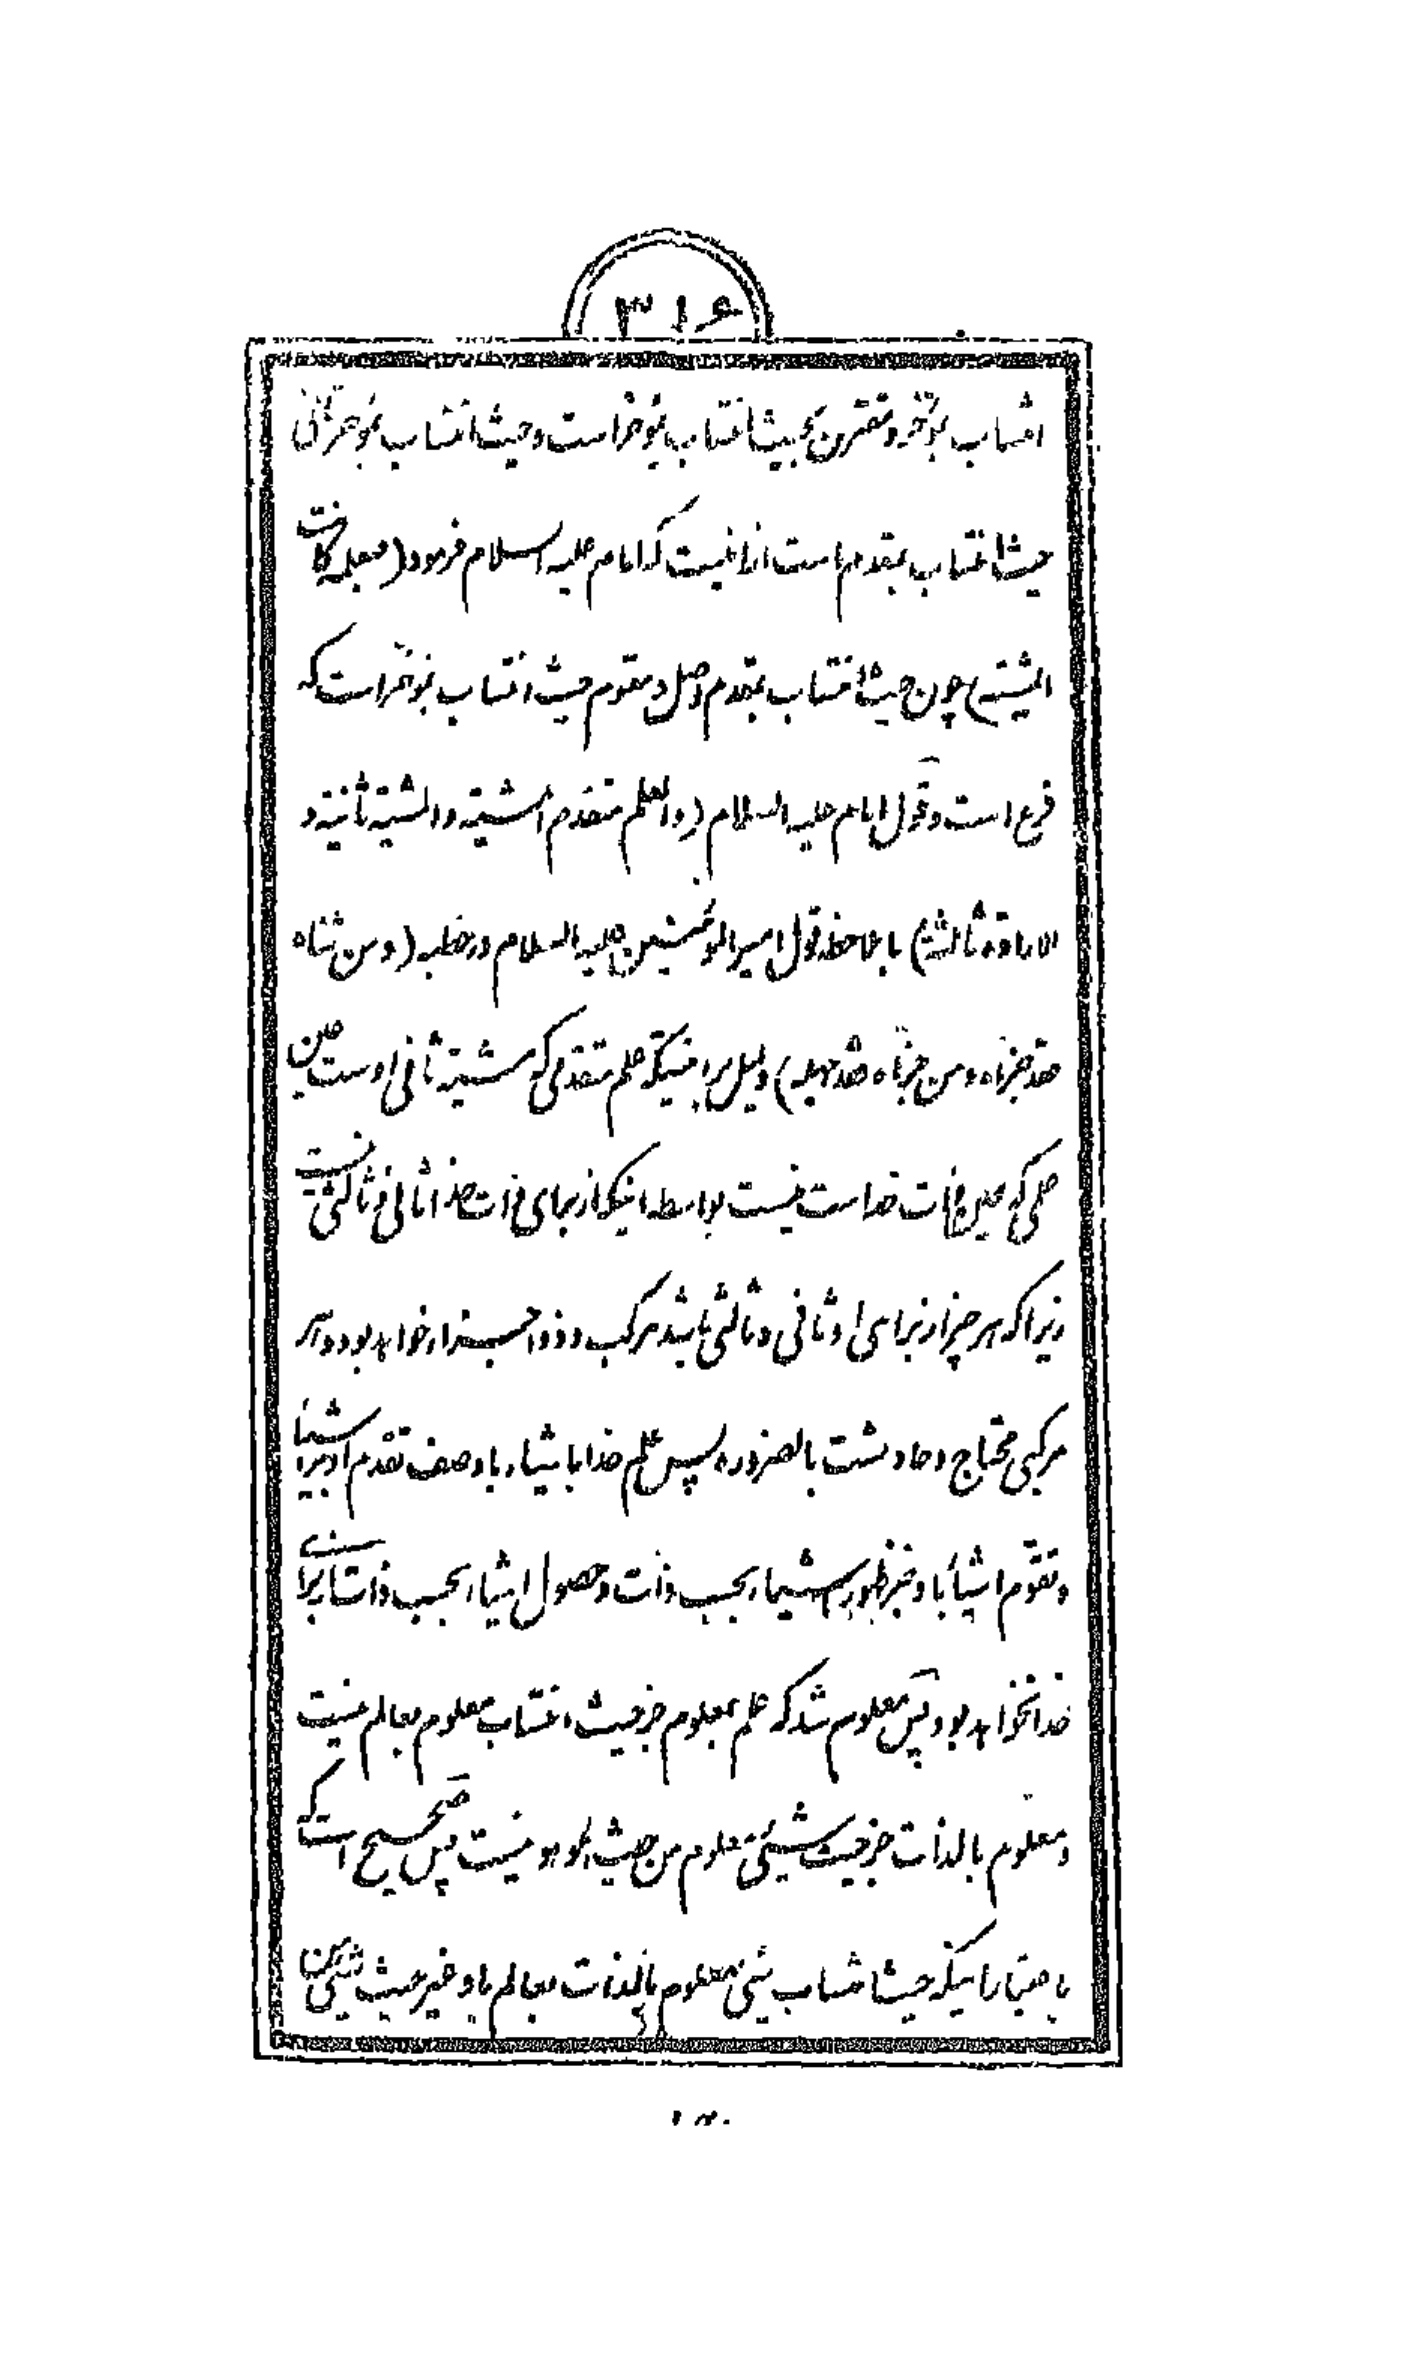 ۳۱۶
انتساب بمؤخر و مقترن بحیث انتساب بمؤخر است و حیث انتساب بمؤخر ثانی
حیث انتساب بمقدم است از اینست که امام علیه السلام فرمود (فبعلمه کانت
المشیته) چون حیث انتساب بمقدم اصل و مقوم حیث انتساب بمؤخر است که
فرع است و قول امام علیه السلام (والعلم متقدم المشیته والمشیته ثانیته و
الارادة ثالثة) با ملاحظه قول امیرالمؤمنین علیه السلام در خطبه (و من ثناه
فقد جزاه و من جزاه فقد جهله) دلیل بر اینکه علم متقدمی که مشیته ثانی اوست عین
علمی که عین ذات خداست نیست بواسطه اینکه از برای ذات خدا ثانی و ثالثی نیست
زیرا که هر چیز از برای او ثانی و ثالثی باشد مرکب و ذو اجزاء خواهد بود و هر
مرکبی محتاج و حادثست بالضروره پس علم خدا باشیاء با وصف تقدم او بر اشیاء
و تقوم اشیاء باو غیر ظهور اشیاء بحسب ذات و حصول اشیاء بحسب ذات از برای
خدا نخواهد بود پس معلوم شد که علم بمعلوم جز حیث انتساب معلوم بعالم نیست
و معلوم بالذات جز حیث شیئی معلوم من حیث هو هو نیست پس صحیح است که
باعتبار اینکه حیث انتساب شیئی معلوم بالذات بعالم باو غیر حیث شیئی من